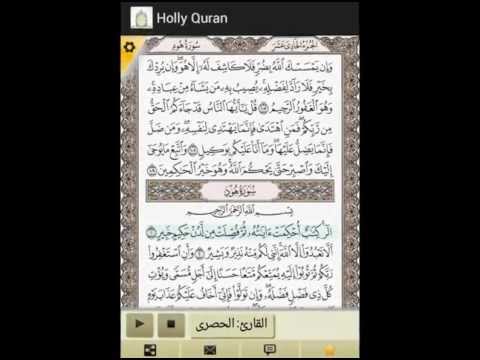 Holly Quran
سُورَةُ هُود الجزء الحادي عشر
وَإِن يَمْسَسْكَ اللَّهُ بِضُرٍّ فَلَا كَاشِفَ لَهُ إِلَّا هُوَ وَإِن يُرِدْكَ
بِخَيْرٍ فَلَا رَادَّ لِفَضْلِهِ يُصِيبُ بِهِ مَن يَشَاءُ مِنْ عِبَادِهِ
وَهُوَ الْغَفُورُ الرَّحِيمُ ١٠٧ قُلْ يَا أَيُّهَا النَّاسُ قَدْ جَاءَكُمُ الْحَقُّ
مِن رَّبِّكُمْ فَمَنِ اهْتَدَىٰ فَإِنَّمَا يَهْتَدِي لِنَفْسِهِ وَمَن ضَلَّ
فَإِنَّمَا يَضِلُّ عَلَيْهَا وَمَا أَنَا عَلَيْكُم بِوَكِيلٍ ١٠٨ وَاتَّبِعْ مَا يُوحَىٰ
إِلَيْكَ وَاصْبِرْ حَتَّىٰ يَحْكُمَ اللَّهُ وَهُوَ خَيْرُ الْحَاكِمِينَ ١٠٩
سُورَةُ هُودٍ
بِسْمِ اللَّهِ الرَّحْمَٰنِ الرَّحِيمِ
الر كِتَابٌ أُحْكِمَتْ آيَاتُهُ ثُمَّ فُصِّلَتْ مِن لَّدُنْ حَكِيمٍ خَبِيرٍ ١
أَلَّا تَعْبُدُوا إِلَّا اللَّهَ إِنَّنِي لَكُم مِّنْهُ نَذِيرٌ وَبَشِيرٌ ٢ وَأَنِ اسْتَغْفِرُوا
رَبَّكُمْ ثُمَّ تُوبُوا إِلَيْهِ يُمَتِّعْكُم مَّتَاعًا حَسَنًا إِلَىٰ أَجَلٍ مُّسَمًّى وَيُؤْتِ
كُلَّ ذِي فَضْلٍ فَضْلَهُ وَإِن تَوَلَّوْا فَإِنِّي أَخَافُ عَلَيْكُمْ عَذَابَ يَوْمٍ
القارئ: الحصرى